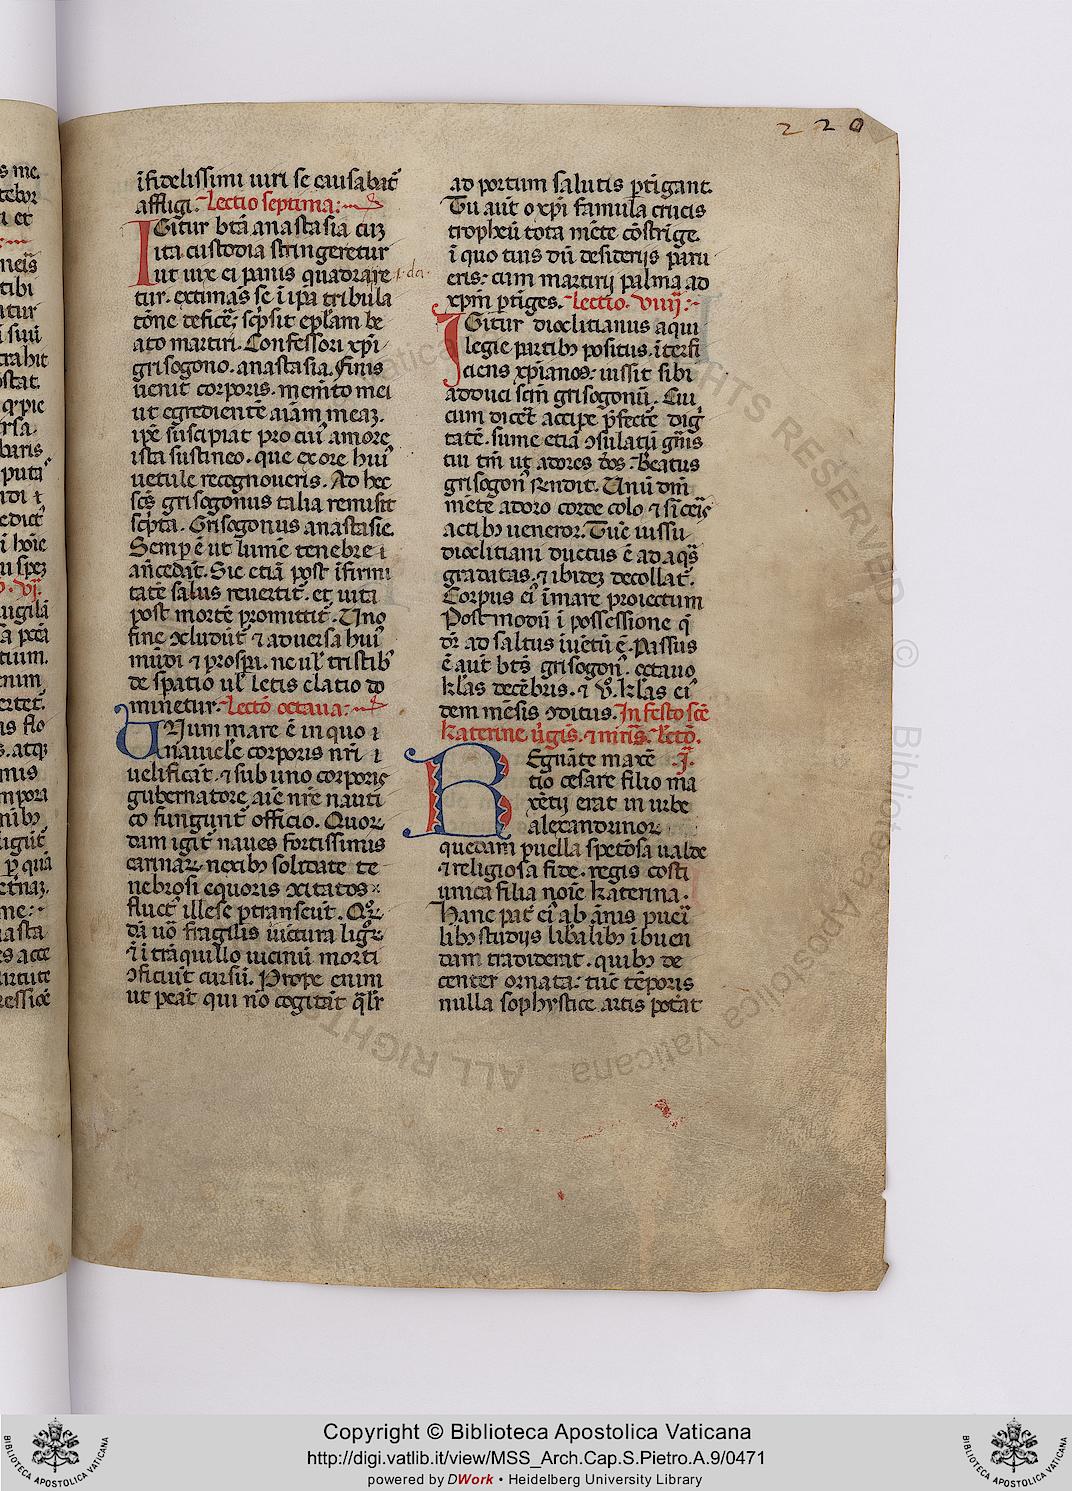 220
ĩfidelissimi uiri se causabat᷑
affligi. Lectio septima:
IGit᷑ur btã anastasia cuʒ
ita custodia stringeretur
ut uix ei panis quadrare
tur. extimãs se ĩ ipa tribula
tõne deficẽ, scp̃sit epl̃am be
ato martiri. Confessori xp̃i
grisogono. anastasia. Finis
uenit corporis. memẽto mei
ut egrediente aĩam meaʒ.
ip̃e suscipiat pro cui᷒ amore
ista sustineo. que ex ore hui᷒
uetule recognoueris. Ad hec
sc̃s grisogonus talia remisit
sc̃pta. Grisogonus anastasie.
Semp ẽ ut lumẽ tenebre
ãncedãt. Sic etiã post ĩfirmi
tatẽ salus reuertit᷑. et uita
post mortẽ promittit᷑. Uno
fine ↄcludũt᷑ ⁊ aduersa hui᷒
mũdi ⁊ prospa. ne ul᷒ tristib᷒
de spatio ul᷒ letis elatio do
minetur. Lectõ octaua:
UNum mare ẽ in quo
nauicule corporis nr̃i
uelificãt. ⁊ sub uno corporis
gubernatore aĩe nr̃e nauti
co fungunt᷑ officio. Quorꝝ
dam igit᷑ naues fortissimis
carinaꝝ nexib᷒ solidate te
nebrosi equoris ↄcitatos
fluct᷒ illese p̱transeũt. Quoꝝ
dã uõ fragilis iũctura lignoꝝ
⁊ ĩ trãquillo uicinũ morti
ↄficiũt cursũ. Prope enim
ut peat qui nõ cogitat q̃lr̃
ad portum salutis p̱tĩgant.
Tu aut̃ o xp̃i famula crucis
tropheũ tota mẽte cõstrige.
ĩ quo tuis dũ desiderijs paru
eris: cum martirij palma ad
xp̃m p̱tĩges. Lectio. viiij:
IGitur dioclitianus aqui
legie partib᷒ positus. ĩterfi
ciens xp̃ianos: iussit sibi
adduci sc̃m grisogonũ. Cui
cum dicet᷑ accipe p̃fecte dig
tatẽ. sume etiã ↄsulatũ gñis
tui tm̃ ut adores dõs. Beatus
grisogon᷒ rñdit. Unũ dm̃
mẽte adoro corde colo ⁊ sĩceris
actib᷒ ueneror. Tũc iussu
dioclitiani ductus ẽ ad aq̃s
gradatas. ⁊ ibideʒ decollat᷒.
Corpus ei᷒ ĩ mare proiectum
Post modũ ĩ possessione q̃
dr̃ ad saltus iuẽtũ ẽ. Passus
ẽ aut̃ bt̃s grisogon᷒. octauo
kl̃as decẽbris. ⁊ vᵒ. kl̃as ei᷒
dem mẽsis ↄditus. In festo sc̃e
katerine ũgĩs. ⁊ mr̃is. Lctõ.
REgnãte maxẽ j.ᵃ
tio cesare filio ma
xẽtij erat in urbe
alexandrinoꝝ
quedam puella spetiosa ualde
⁊ religiosa fide. regis costi
unica filia noĩe katerina.
Hanc pat᷑ ei᷒ ab ãnis pueri
lib᷒ studijs lib̃alib᷒ ĩbuen
dam tradiderat. quib᷒ de
center ornata: tũc tẽporis
nulla sophystice artis pot̃at
ALL RIGHTS RESERVED © Biblioteca Apostolica Vaticana
Copyright © Biblioteca Apostolica Vaticana
http://digi.vatlib.it/view/MSS_Arch.Cap.S.Pietro.A.9/0471
powered by DWork • Heidelberg University Library
BIBLIOTECA APOSTOLICA VATICANA
BIBLIOTECA APOSTOLICA VATICANA